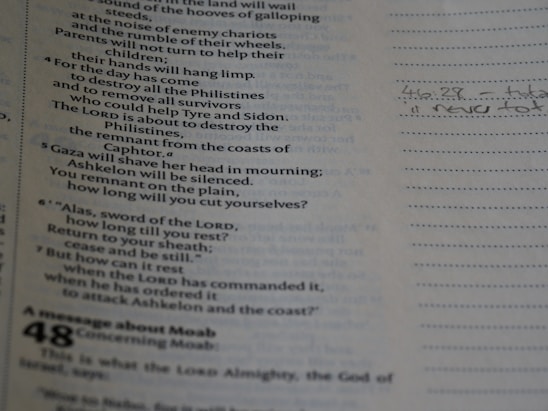 in the land will wail
sound of the hooves of galloping
steeds,
at the noise of enemy chariots
and the rumble of their wheels.
Parents will not turn to help their
children;
their hands will hang limp.
4 For the day has come
to destroy all the Philistines
and to remove all survivors
who could help Tyre and Sidon.
The LORD is about to destroy the
Philistines,
the remnant from the coasts of
Caphtor.a
5 Gaza will shave her head in mourning;
Ashkelon will be silenced.
You remnant on the plain,
how long will you cut yourselves?
6 ‘ “Alas, sword of the LORD,
how long till you rest?
Return to your sheath;
cease and be still.”
7 But how can it rest
when the LORD has commanded it,
when he has ordered it
to attack Ashkelon and the coast?’
A message about Moab
48 Concerning Moab:
This is what the LORD Almighty, the God of
Israel, says:
‘Woe to Nebo, for it will be
46:28 – tota
never tot